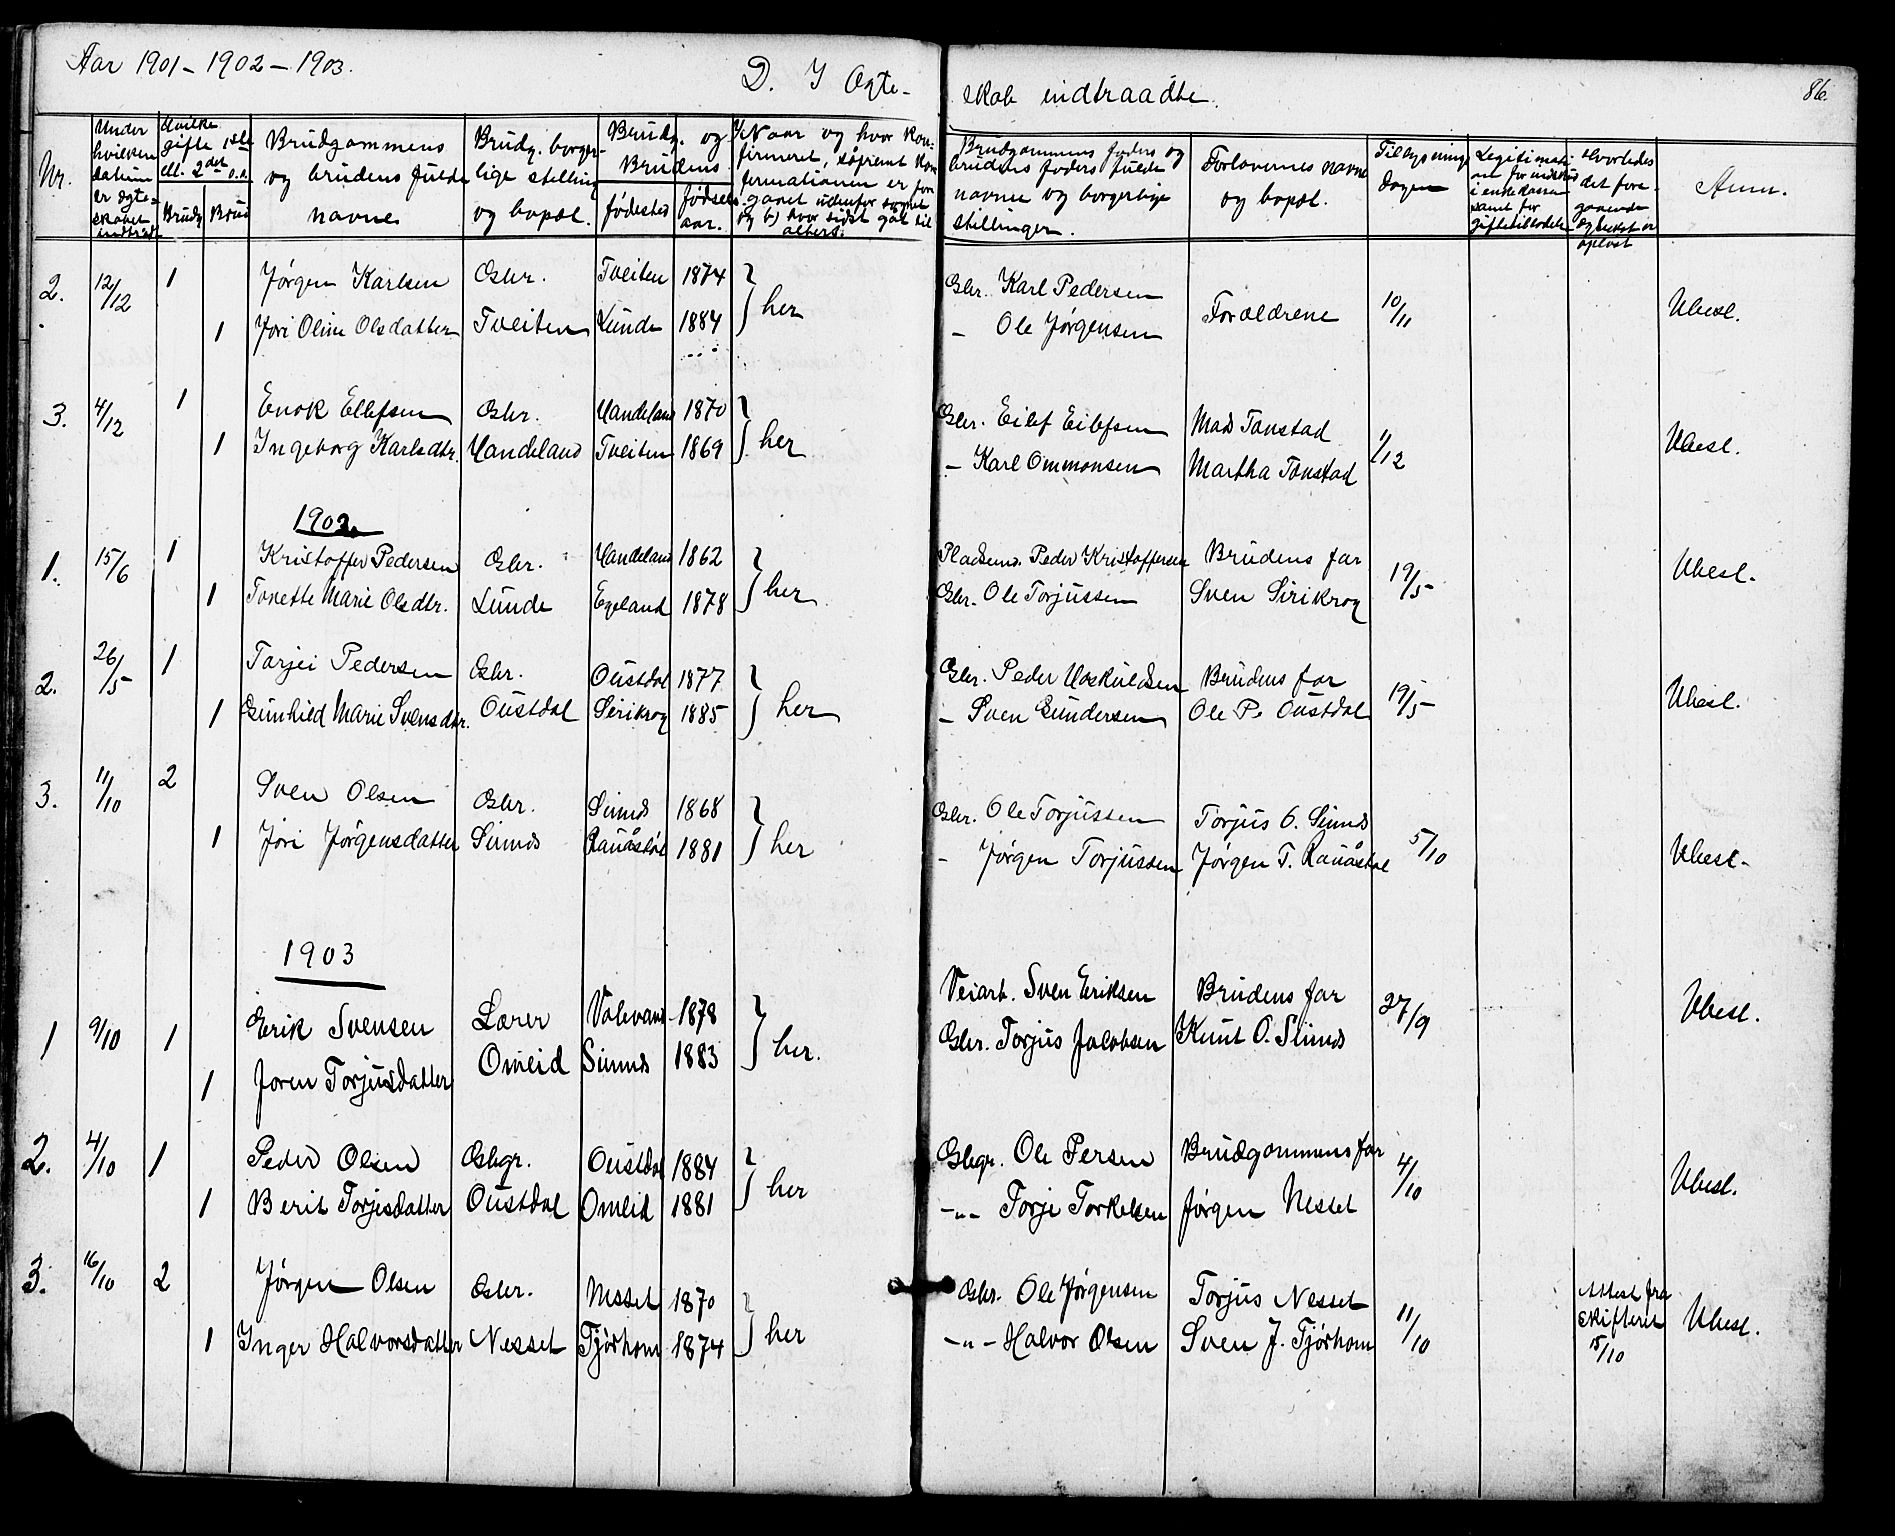 Aar 1901 - 1902 - 1903.
D. I Ægte-
skab indtraadte.
86.
Nr.
Under hvilken datum er ægte-skabet indtraadt
Hvilke gifte 1ste ell. 2det o.s.
Brudg
Brud
Brudgommens og brudens fulde navne
Brudg. borger-lige stilling og bopæl.
Brudg. og Brudens
fødested
fødsels aar.
Naar og hvor kon-firmeret, såfremt kon firmationen er fore gaaet udenfor sognet og b) hvor sidst gåt til alters.
Brudgommens faders og brudens faders fulde navne og borgerlige stillinger.
Forlovernes navne og bopæl.
Tillysnings dagen
Legitimati on for indskud i enkekassen samt for giftetilladelse
Hvorledes det fore-gaaende ægteskab er opløst
Anm.
2. 12/12 1 Jørgen Karlsen Gbr. Tveiten 1874 } her Gbr. Karl Pedersen Forældrene 10/11 Ubesl.
1 Jori Oline Olsdatter Tveiten Lunde 1884 - Ole Jørgensen
3. 4/12 1 Enok Ellefsen Gbr. Haadeland 1870 } her Gbr. Eilef Eilefsen Mads Tonstad 1/12 Ubesl.
1 Ingeborg Karlsdtr. Haadeland Tveiten 1869 - Karl Ommonsen Martha Tonstad
1902.
1. 15/6 1 Kristoffer Pedersen Gbr. Haadeland 1862 } her Pladsmd. Peder Kristoffersen Brudens far 19/5 Ubesl.
1 Tonette Marie Olsdtr. Lunde Egeland 1878 Gbr. Ole Torjussen Sven Sirikrog
2. 26/5 1 Tarjei Pedersen Gbr. Oustdal 1877 } her Gbr. Peder Hoskuldsen Brudens far 19/5 Ubesl.
1 Gunhild Marie Svensdtr. Oustdal Sirikrog 1885 - Sven Gundersen Ole P. Oustdal
3. 11/10 2 Sven Olsen Gbr. Sinnes 1868 } her Gbr. Ole Torjussen Torjus O. Sinnes 5/10 Ubesl.
1 Jori Jørgensdatter Sinnes Rauåstøl 1881 - Jørgen Torjussen Jørgen T. Rauåstøl
1903
1 9/10 1 Erik Svensen Lærer Valevand 1878 } her. Veiarb. Sven Eriksen Brudens far 27/9 Ubesl.
1 Joren Torjusdatter Omlid Sinnes 1883 Gbr. Torjus Jakobsen Knut O. Sinnes
2. 4/10 1 Peder Olsen Gbgr. Oustdal 1884 } her Gbgr. Ole Persen Brudgommens far 4/10 Ubesl.
1 Berit Torjesdatter Oustdal Omlid 1881 -"- Torje Torkelsen Jørgen Nesset
3. 16/10 2 Jørgen Olsen Gbr. Nesset 1870 } her Gbr. Ole Jørgensen Torjus Nesset 11/10 Attest fra skifteret 15/10 Ubesl.
1 Inger Halvorsdatter Nesset Tjørhom 1874 -"- Halvor Olsen Sven J. Tjørhom